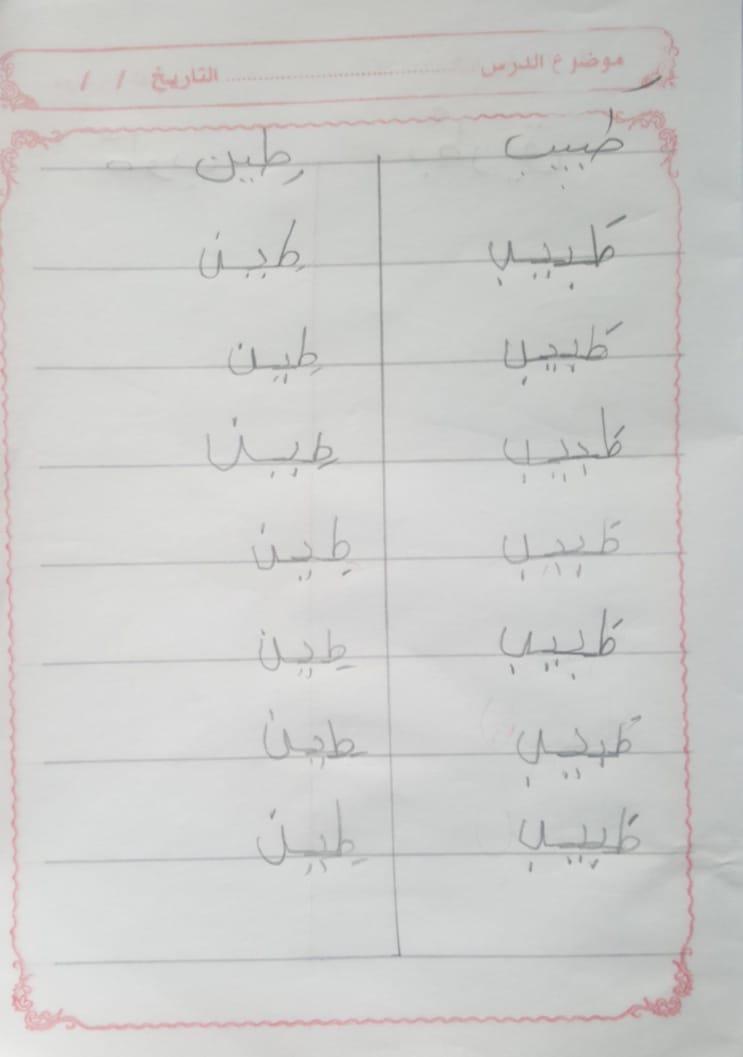 موضوع الدرس ........................ التاريخ / /
طَبيب طِين
طَبيب طِين
طَبيب طِين
طَبيب طِين
طَبيب طِين
طَبيب طِين
طَبيب طِين
طَبيب طِين